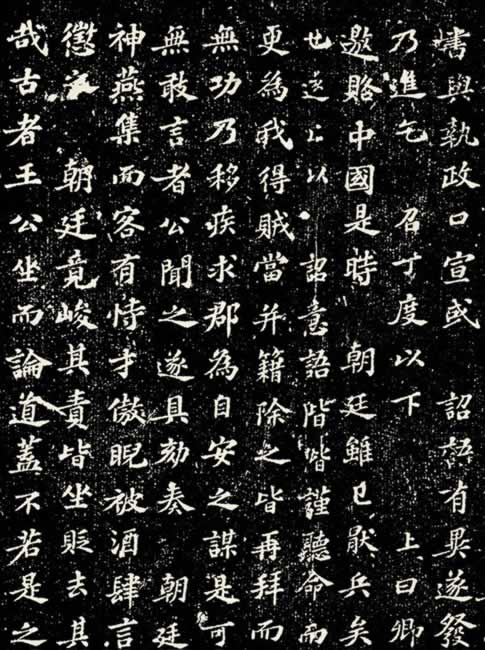 與執政口宣或 詔語有異遂發
乃進乞 召丁度以下 上曰卿
邀賂中國是時 朝廷雖已厭兵矣
也遠上以 詔意語階階謹聽命而
更為我得賊當并籍除之皆再拜而
無功乃移疾求郡為自安之謀是可
無敢言者公聞之遂具劾奏 朝廷
神燕集而客有恃才傲睨被酒肆言
懲 朝廷竟峻其責皆坐貶去其
哉古者王公坐而論道蓋不若是之